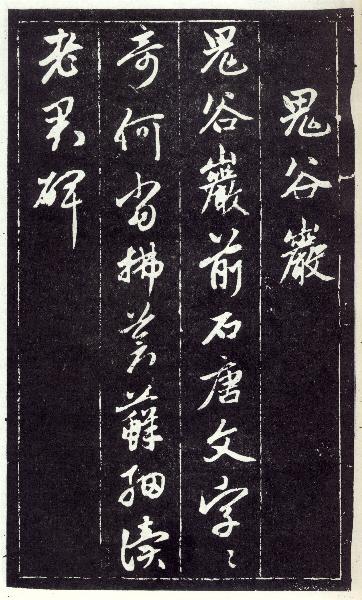 鬼谷巖
鬼谷巖前石唐文字々
奇何當拂蒼蘚細讀
老君碑